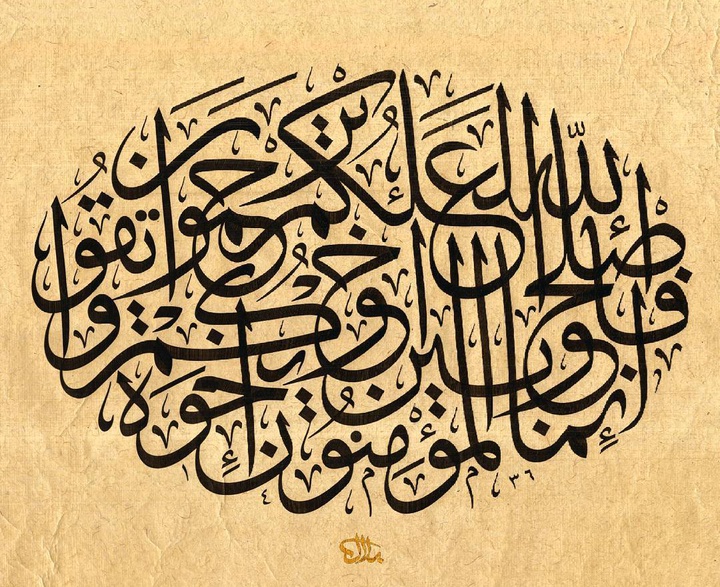 إنما المؤمنون إخوة
فأصلحوا بين أخويكم
واتقوا الله لعلكم ترحمون
١٤٣٦